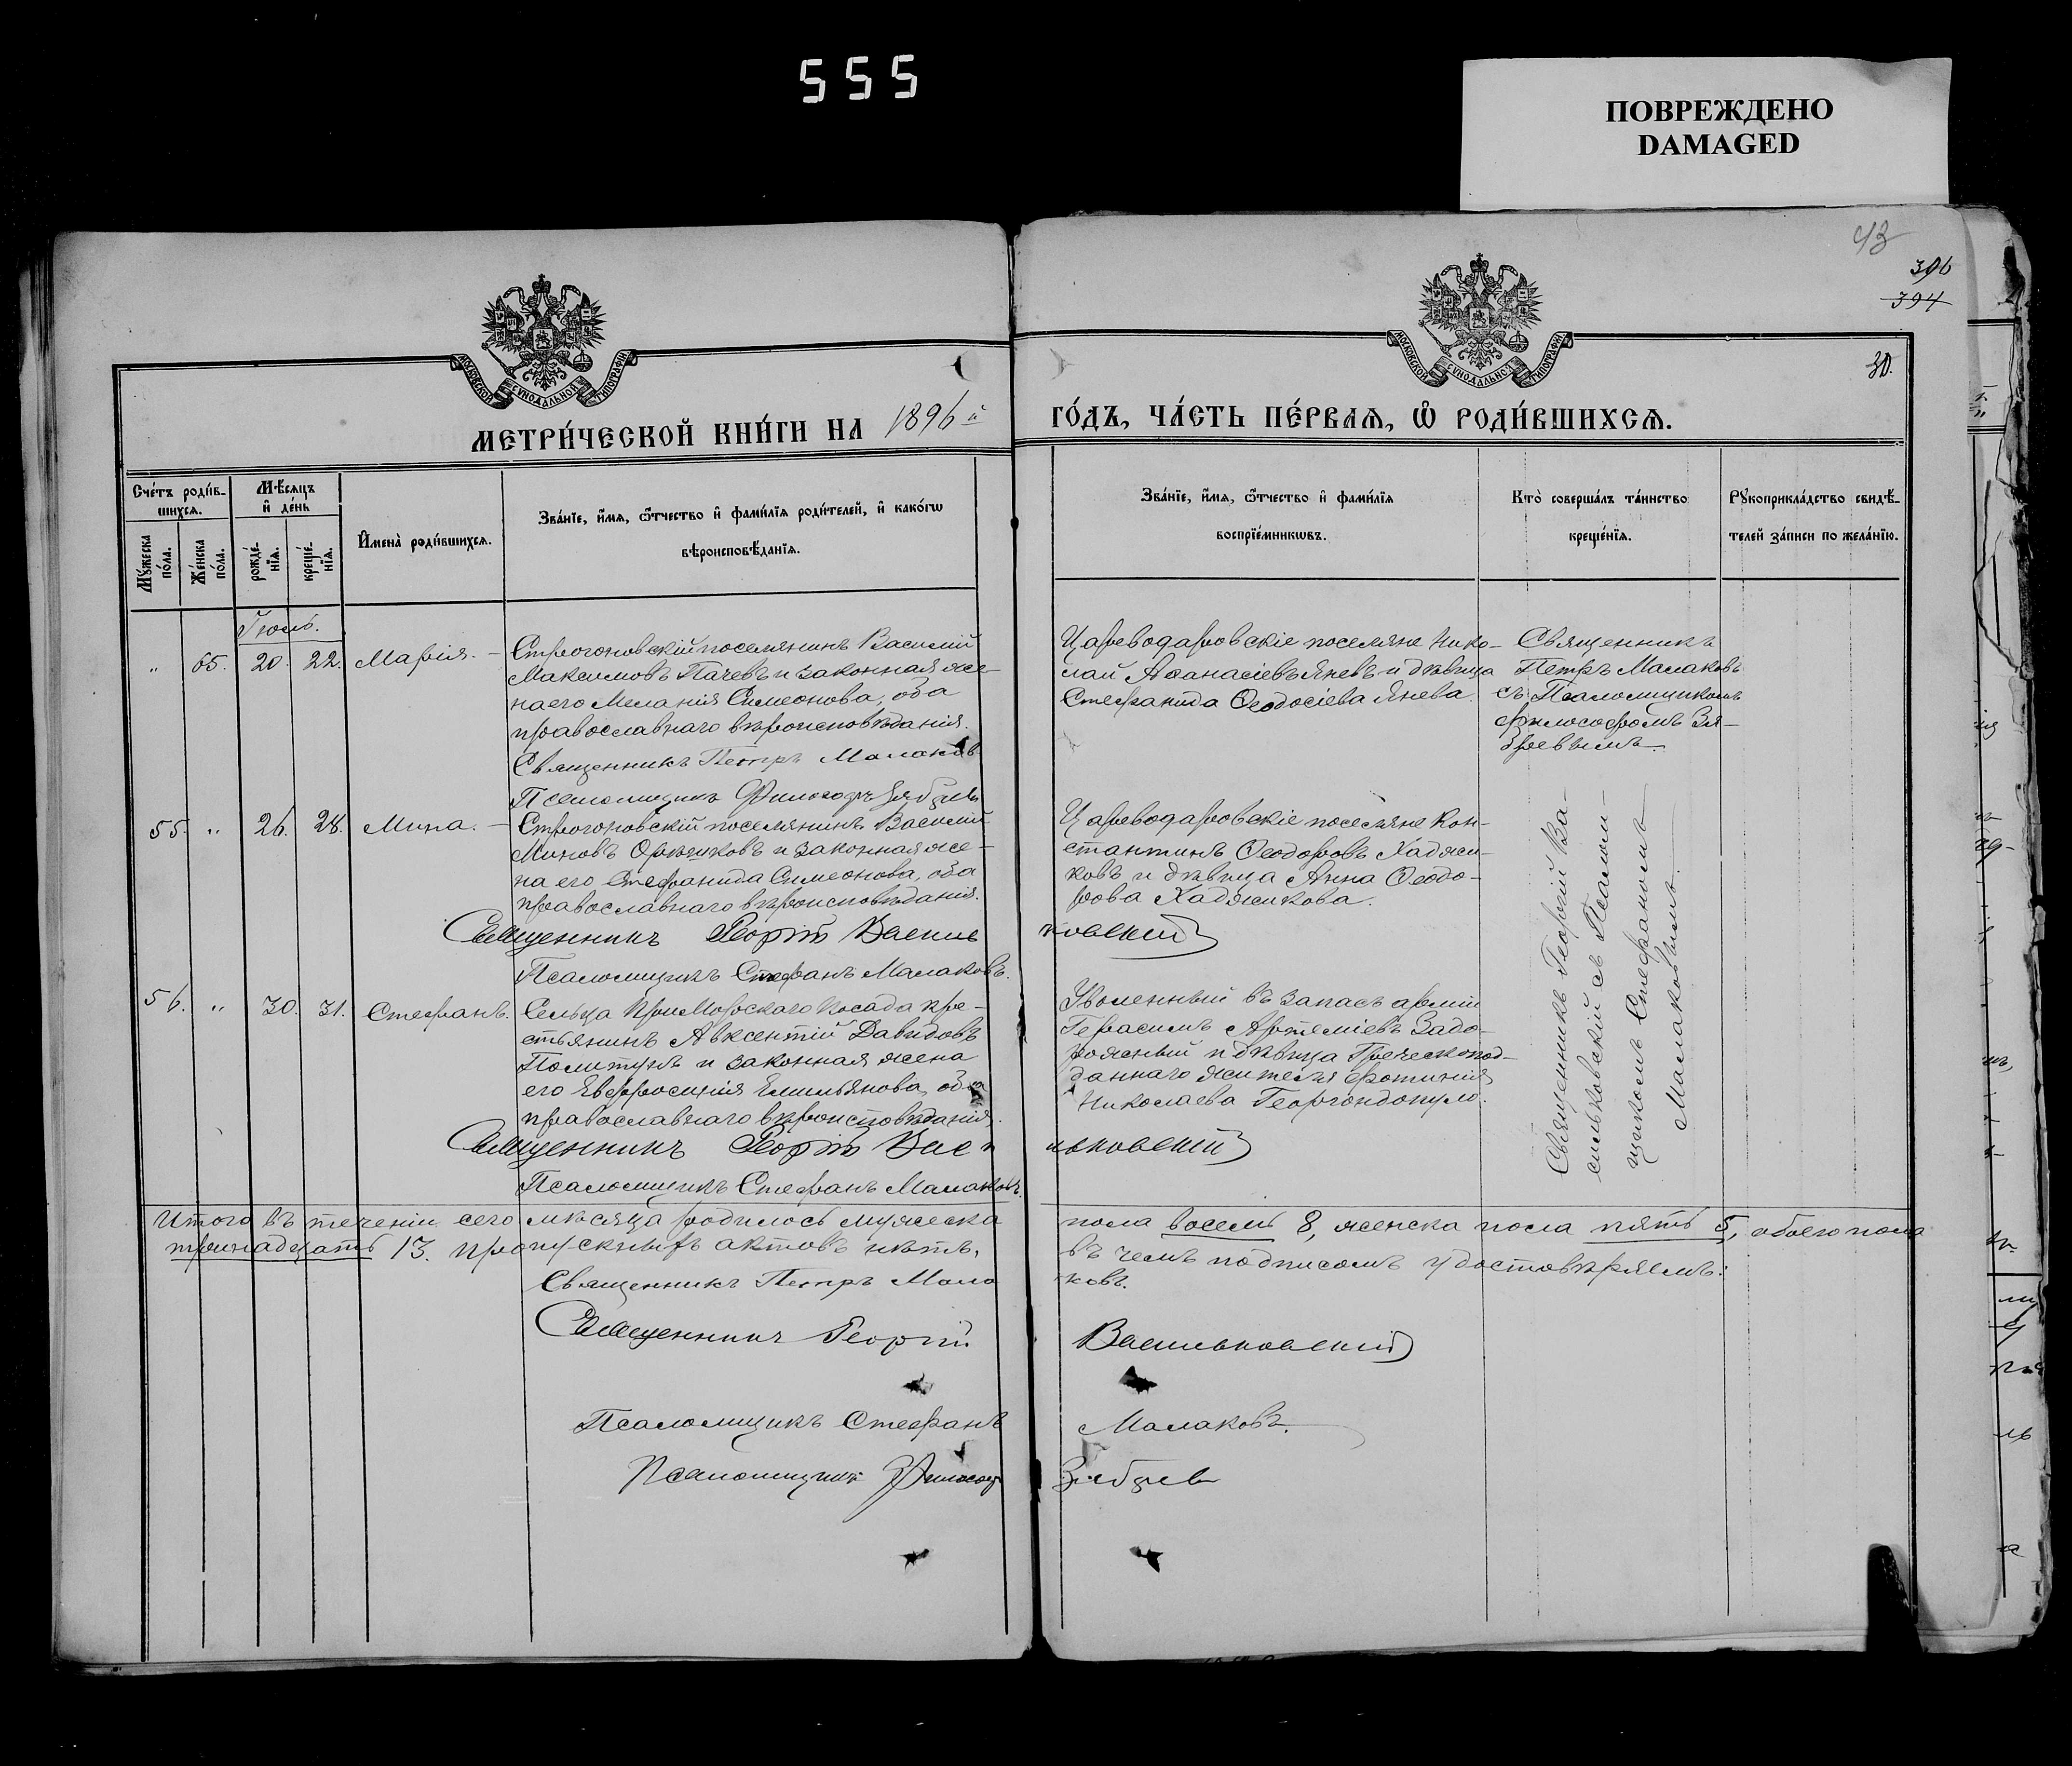 555
ПОВРЕЖДЕНО
DAMAGED
43
396
394
30.
МОСКОВСКОЙ СУНОДАЛЬНОЙ ТИПОГРАФІИ
МОСКОВСКОЙ СУНОДАЛЬНОЙ ТИПОГРАФІИ
МЕТРИ́ЧЕСКОЙ КНИ́ГИ НА 1896й
ГО́ДЪ, ЧА́СТЬ ПЕ́РВАѦ, Ѽ РОДИ́ВШИХСѦ.
Сче́тъ роди́в-
шихсѧ.
Мѣ́сѧцъ
и҆ де́нь
Мꙋ́жеска
по́ла.
Же́нска
по́ла.
рожде́-
нїѧ.
креще́-
нїѧ.
И҆мена̀ роди́вшихсѧ.
Зва́нїе, и҆́мѧ, ѻ҆́тчество и҆ фами́лїѧ роди́телей, и҆ како́гѡ
вѣроисповѣ́данїѧ.
Зва́нїе, и҆́мѧ, ѻ҆́тчество и҆ фами́лїѧ
воспрїе́мникѡвъ.
Кто̀ соверша́лъ та́инство
креще́нїѧ.
Рꙋкоприкла́дство свидѣ́-
телей за́писи по жела́нїю.
Іюль.
" 65. 20. 22. Марія. — Строгоновскій поселянинъ Василій
Максимовъ Пачевъ и законная же-
на его Меланія Симеонова, оба
православнаго вѣроисповѣданія.
Священникъ Петръ Малаковъ
Псаломщикъ Философъ Зябревъ
Цареводаровскіе поселяне Нико-
лай Аѳанасіевъ Яневъ и дѣвица
Стефанида Ѳеодосіева Янева.
Священникъ
Петръ Малаковъ
съ Псаломщикомъ
Философомъ Зя-
бревымъ.
55. " 26. 28. Мина. — Строгоновскій поселянинъ Василій
Миновъ Орѣшковъ и законная же-
на его Стефанида Симеонова, оба
православнаго вѣроисповѣданія.
Священникъ Георгій Василь
ковскій
Псаломщикъ Стефанъ Малаковъ.
Цареводаровскіе поселяне Кон-
стантинъ Ѳеодоровъ Хаджи-
ковъ и дѣвица Анна Ѳеодо-
рова Хаджикова.
Священникъ Георгій Ва-
сильковскій съ Псалом-
щикомъ Стефаномъ
Малаковымъ.
56. " 30. 31. Стефанъ. Сельца ПриМорскаго Посада кре-
стьянинъ Авксентій Давидовъ
Политунъ и законная жена
его Евфросинія Емильянова, оба
православнаго вѣроисповѣданія.
Священникъ Георгій Васи
льковскій
Псаломщикъ Стефанъ Малаковъ.
Уволенный въ запасъ арміи
Герасимъ Артеміевъ Задо-
рожный и дѣвица Греческопод-
даннаго жителя Фотинія
Николаева Георгондопуло.
Итого въ теченіи сего мѣсяца родилось мужеска пола восемь 8, женска пола пять 5, обоего пола
тринадцать 13. пропускныхъ актовъ нѣтъ, въ чемъ подписомъ удостовѣряемъ:
Священникъ Петръ Мала
ковъ.
Священникъ Георгій Васильковскій
Псаломщикъ Стефанъ Малаковъ.
Псаломщикъ Философъ Зябревъ